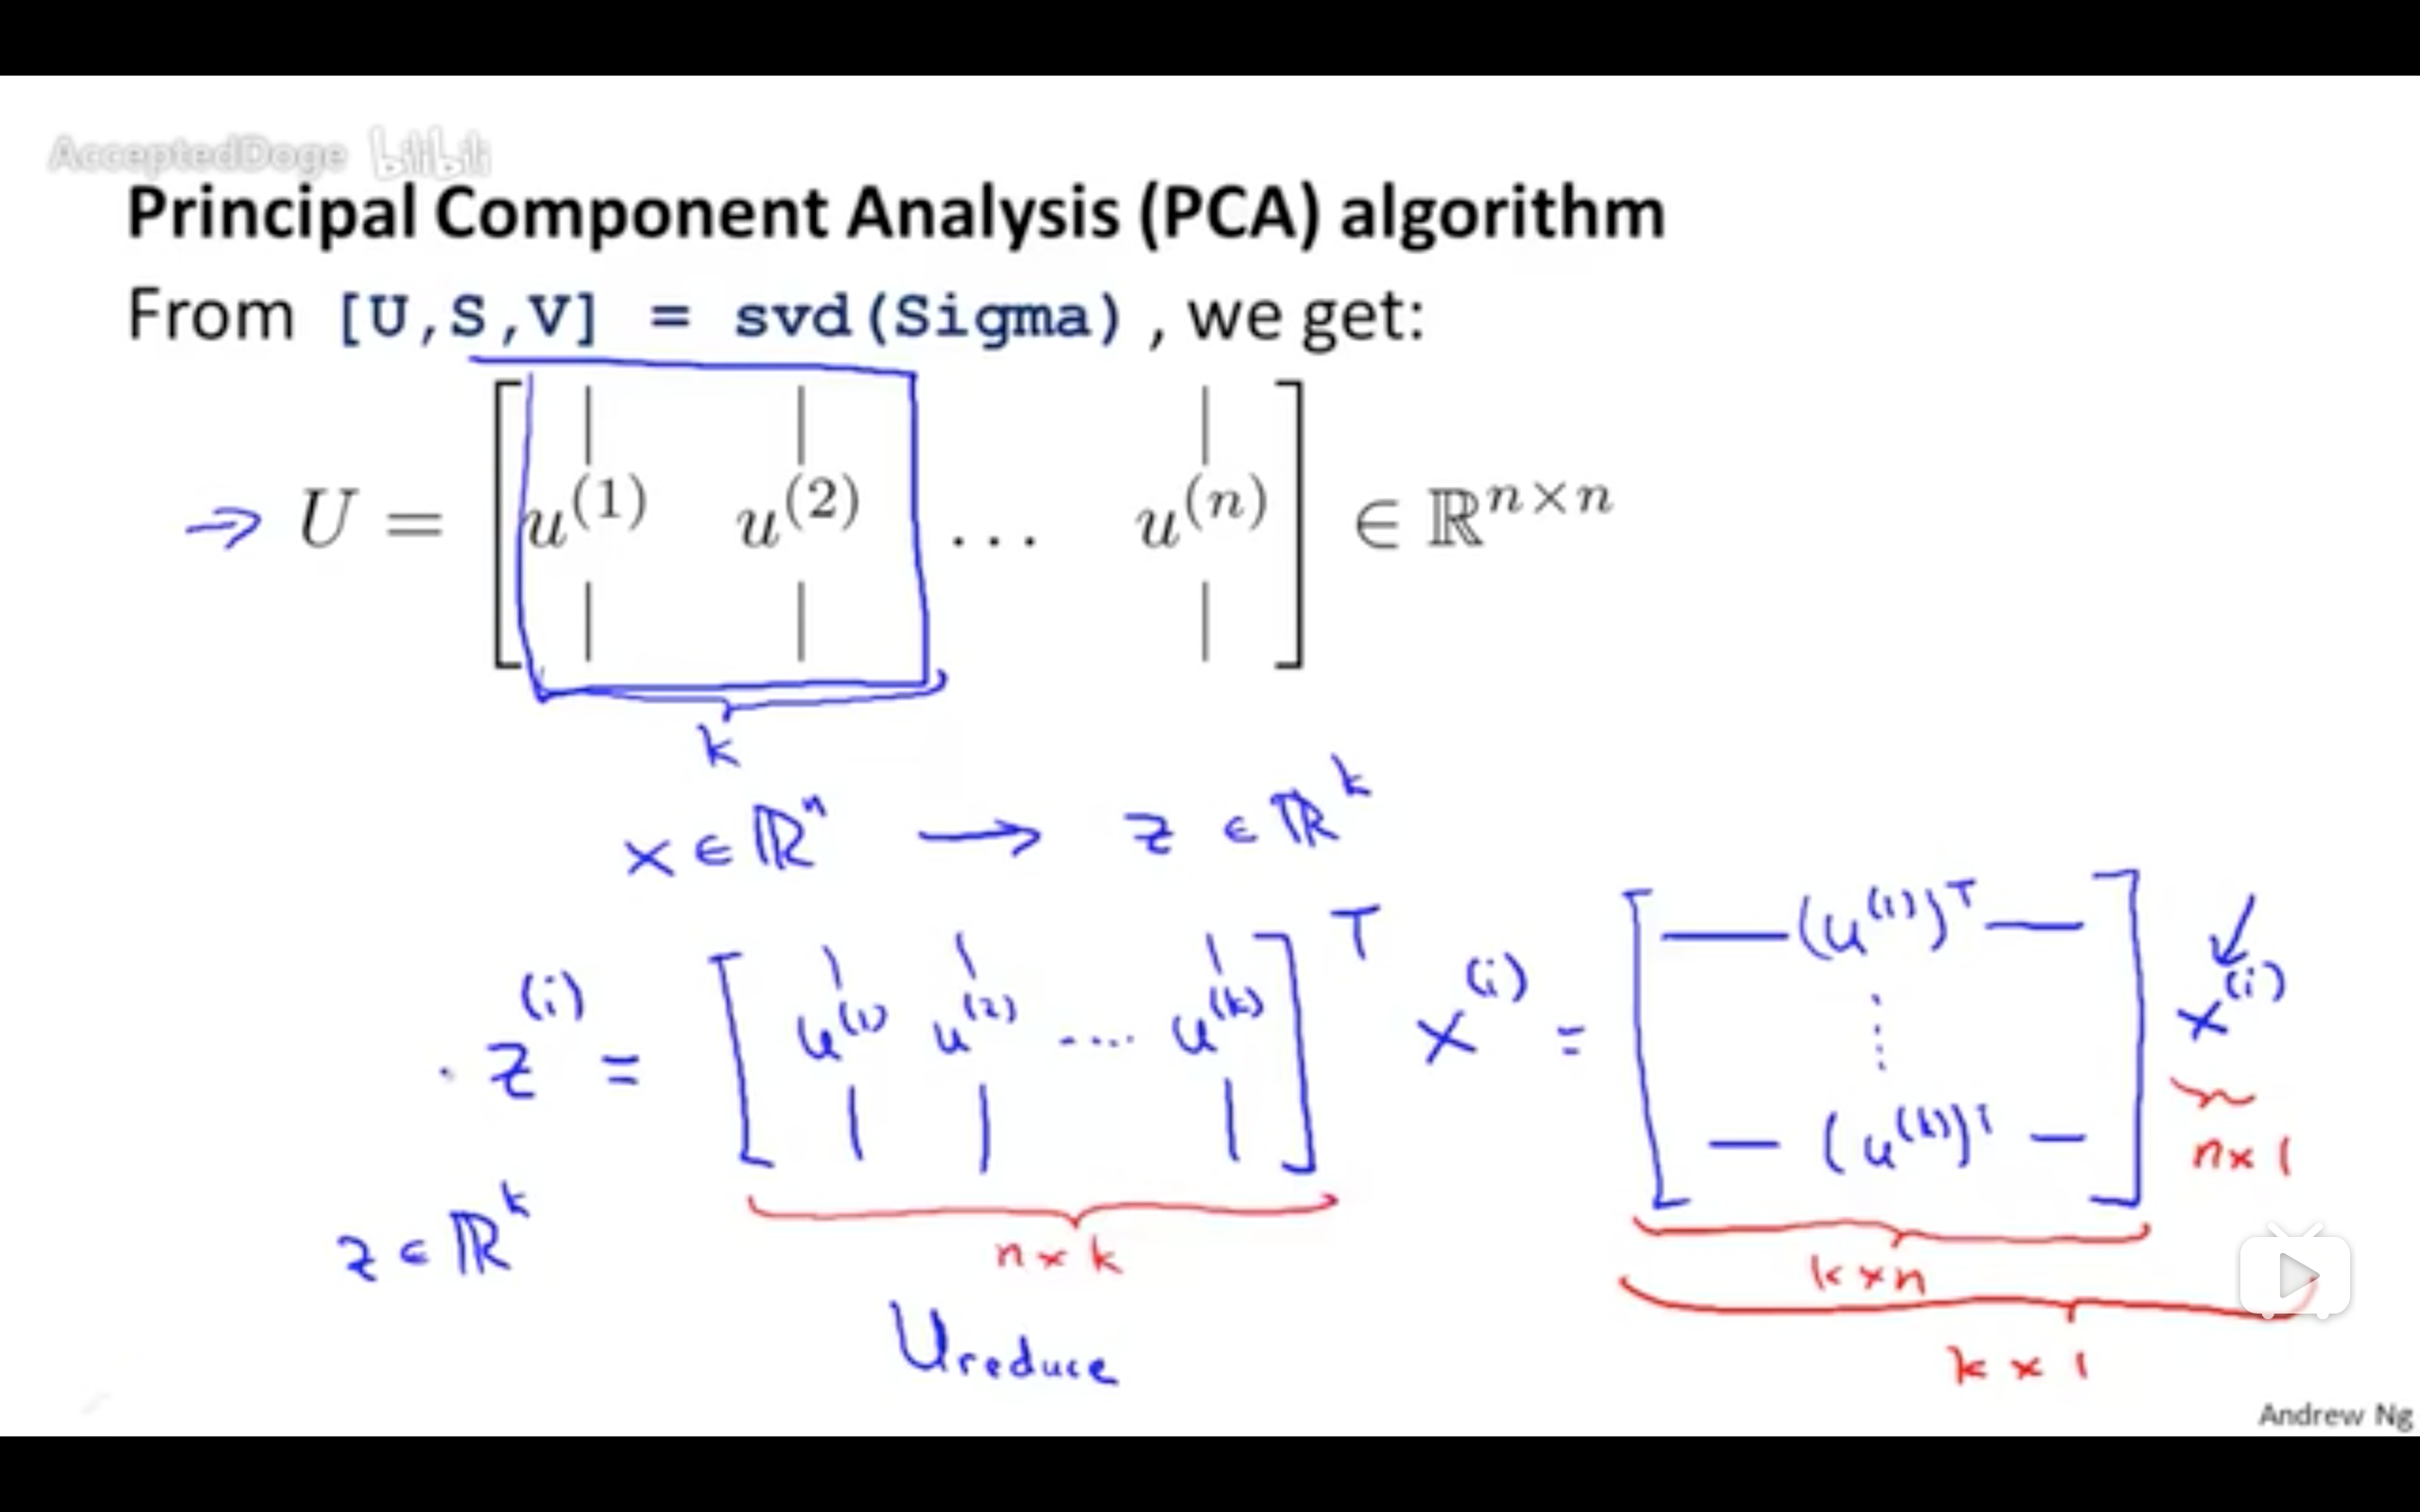 AcceptedDoge bilibili
Principal Component Analysis (PCA) algorithm
From [U,S,V] = svd(Sigma) , we get:
⇒ U = [ u^(1) u^(2) ... u^(n) ] ∈ ℝ^{n×n}
k
x ∈ ℝ^n → z ∈ ℝ^k
z^(i) = [ u^(1) u^(2) .... u^(k) ]^T x^(i) = [ —(u^(1))^T— ⋮ —(u^(k))^T— ] x^(i)
n×1
z ∈ ℝ^k
n×k
k×n
Ureduce
k×1
Andrew Ng